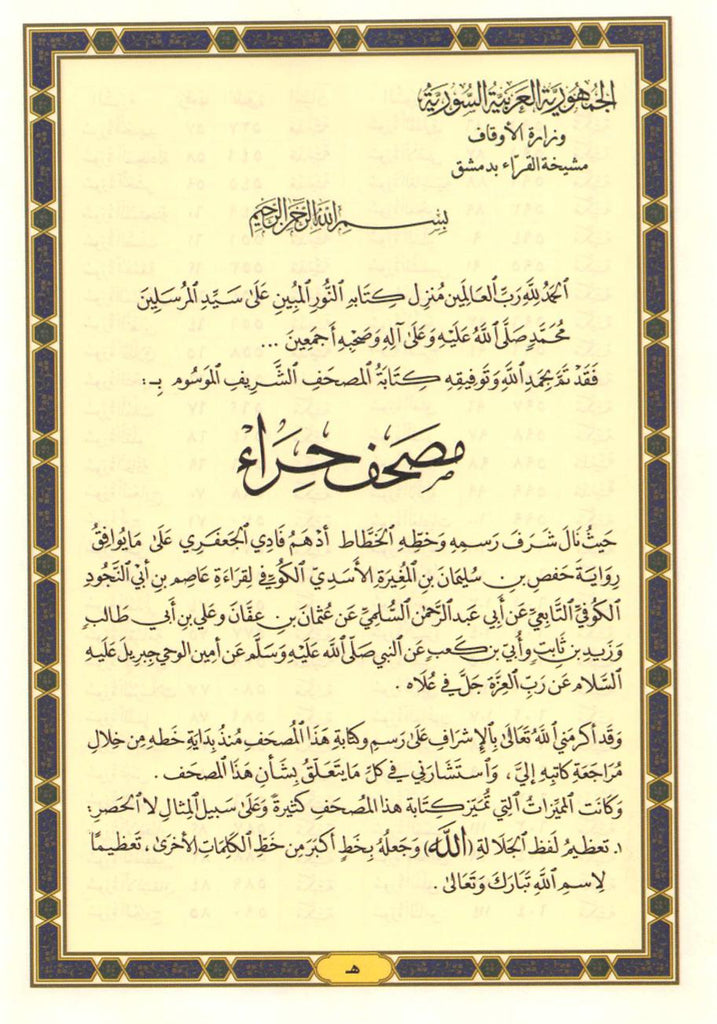 الجمهورية العربية السورية
وزارة الأوقاف
مشيخة القراء بدمشق
بسم الله الرحمن الرحيم
الحمد لله رب العالمين منزل كتابه النور المبين على سيد المرسلين
محمد صلى الله عليه وعلى آله وصحبه أجمعين ...
فقد تم بحمد الله وتوفيقه كتابة المصحف الشريف الموسوم بـ:
مصحف حراء
حيث نال شرف رسمه وخطه الخطاط أدهم فادي الجعفري على ما يوافق
رواية حفص بن سليمان بن المغيرة الأسدي الكوفي لقراءة عاصم بن أبي النجود
الكوفي التابعي عن أبي عبد الرحمن السلمي عن عثمان بن عفان وعلي بن أبي طالب
وزيد بن ثابت وأبي بن كعب عن النبي صلى الله عليه وسلم عن أمين الوحي جبريل عليه
السلام عن رب العزة جل في علاه .
وقد أكرمني الله تعالى بالإشراف على رسم وكتابة هذا المصحف منذ بداية خطه من خلال
مراجعة كاتبه إلي ، واستشارني في كل ما يتعلق بشأن هذا المصحف .
وكانت المميزات التي تميز كتابة هذا المصحف كثيرة وعلى سبيل المثال لا الحصر :
١. تعظيم لفظ الجلالة (الله) وجعله بخط أكبر من خط الكلمات الأخرى ، تعظيما
لاسم الله تبارك وتعالى .
هـ